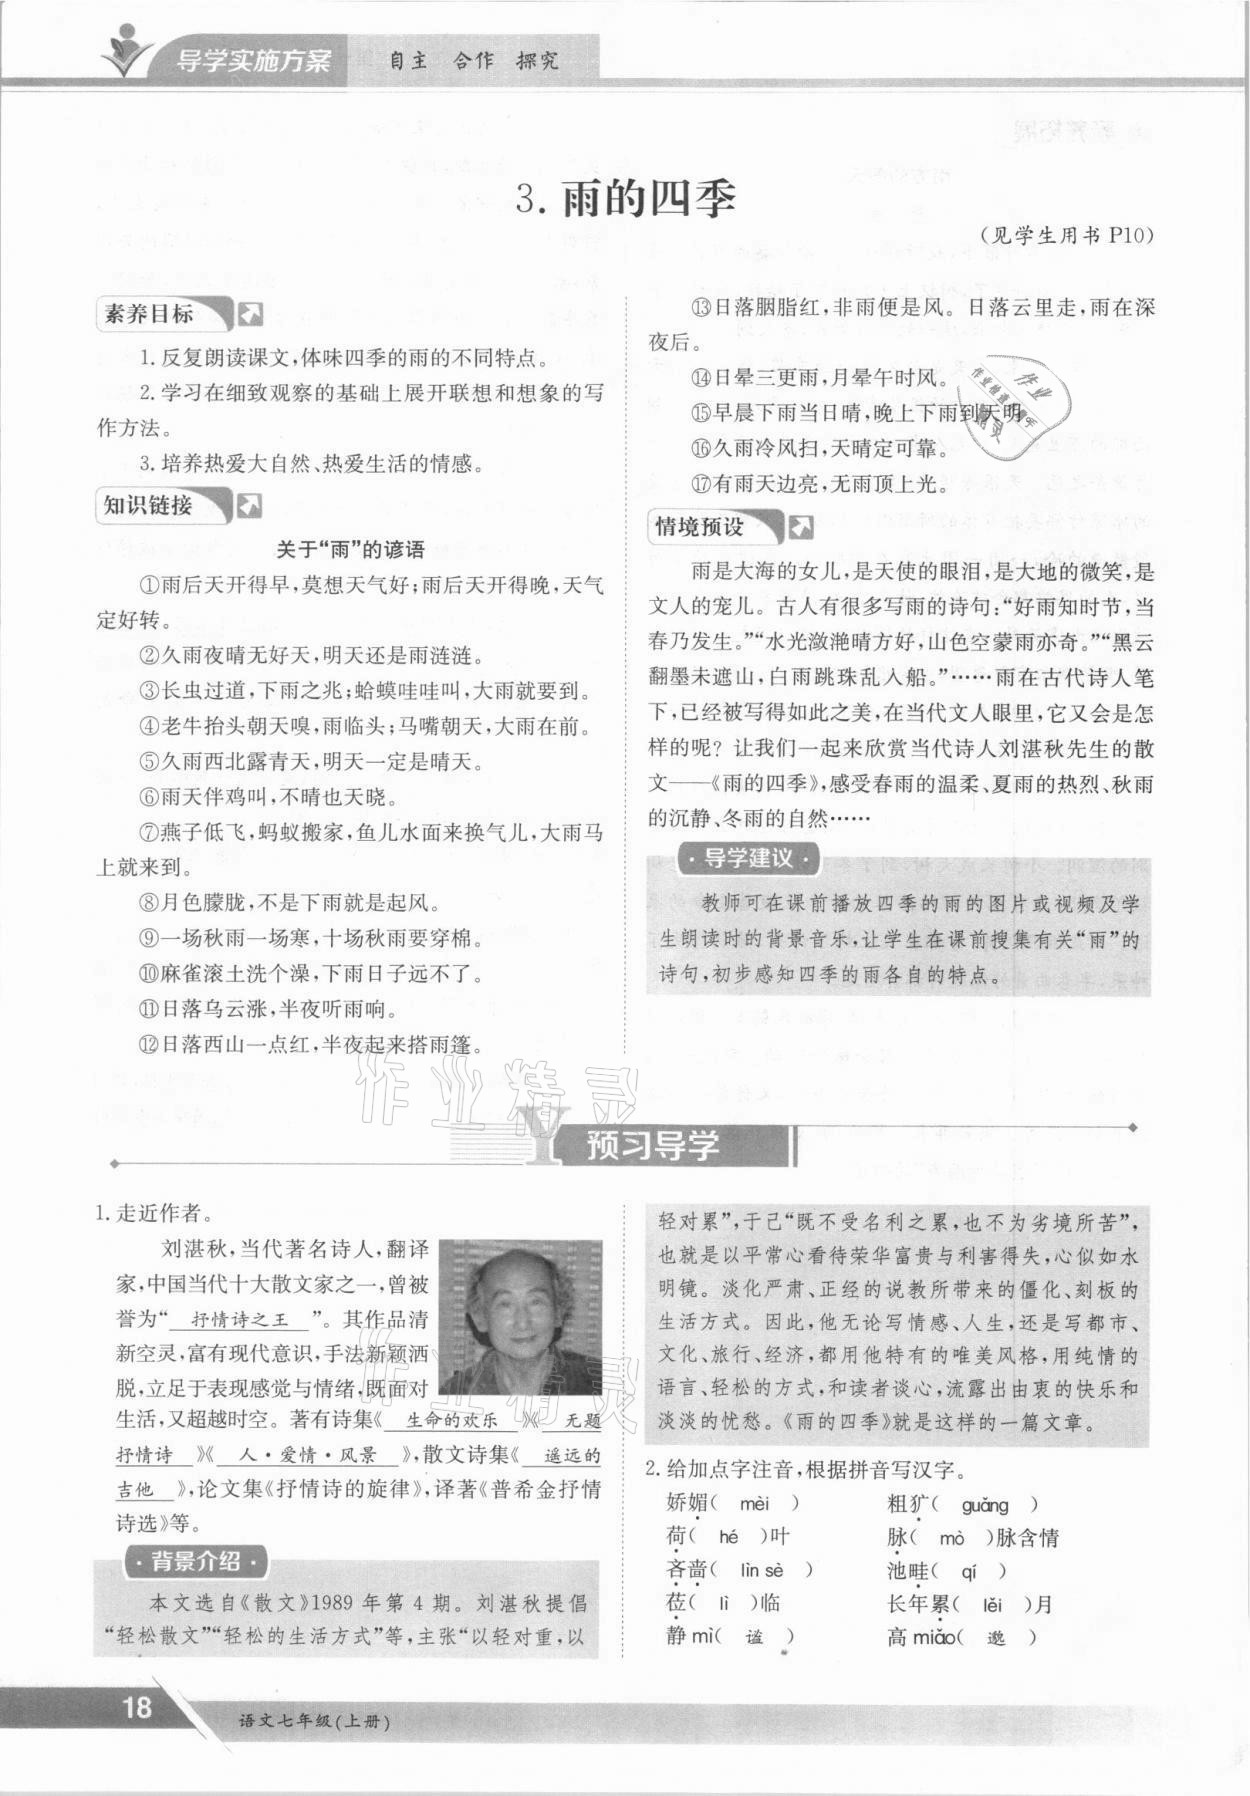 导学实施方案
自主 合作 探究
3. 雨的四季
(见学生用书 P10)
素养目标
1. 反复朗读课文,体味四季的雨的不同特点。
2. 学习在细致观察的基础上展开联想和想象的写
作方法。
3. 培养热爱大自然、热爱生活的情感。
知识链接
关于“雨”的谚语
①雨后天开得早,莫想天气好;雨后天开得晚,天气
定好转。
②久雨夜晴无好天,明天还是雨涟涟。
③长虫过道,下雨之兆;蛤蟆哇哇叫,大雨就要到。
④老牛抬头朝天嗅,雨临头;马嘴朝天,大雨在前。
⑤久雨西北露青天,明天一定是晴天。
⑥雨天伴鸡叫,不晴也天晓。
⑦燕子低飞,蚂蚁搬家,鱼儿水面来换气儿,大雨马
上就来到。
⑧月色朦胧,不是下雨就是起风。
⑨一场秋雨一场寒,十场秋雨要穿棉。
⑩麻雀滚土洗个澡,下雨日子远不了。
⑪日落乌云涨,半夜听雨响。
⑫日落西山一点红,半夜起来搭雨篷。
⑬日落胭脂红,非雨便是风。日落云里走,雨在深
夜后。
⑭日晕三更雨,月晕午时风。
⑮早晨下雨当日晴,晚上下雨到天明
⑯久雨冷风扫,天晴定可靠。
⑰有雨天边亮,无雨顶上光。
作业
作业精灵
情境预设
雨是大海的女儿,是天使的眼泪,是大地的微笑,是
文人的宠儿。古人有很多写雨的诗句:“好雨知时节,当
春乃发生。”“水光潋滟晴方好,山色空蒙雨亦奇。”“黑云
翻墨未遮山,白雨跳珠乱入船。”……雨在古代诗人笔
下,已经被写得如此之美,在当代文人眼里,它又会是怎
样的呢?让我们一起来欣赏当代诗人刘湛秋先生的散
文——《雨的四季》,感受春雨的温柔、夏雨的热烈、秋雨
的沉静、冬雨的自然……
·导学建议·
教师可在课前播放四季的雨的图片或视频及学
生朗读时的背景音乐,让学生在课前搜集有关“雨”的
诗句,初步感知四季的雨各自的特点。
作业精灵
预习导学
1. 走近作者。
刘湛秋,当代著名诗人,翻译
家,中国当代十大散文家之一,曾被
誉为“ 抒情诗之王 ”。其作品清
新空灵,富有现代意识,手法新颖洒
脱,立足于表现感觉与情绪,既面对
生活,又超越时空。著有诗集《 生命的欢乐 》《 无题
抒情诗 》《 人·爱情·风景 》,散文诗集《 遥远的
吉他 》,论文集《抒情诗的旋律》,译著《普希金抒情
诗选》等。
作业精灵
·背景介绍·
本文选自《散文》1989 年第 4 期。刘湛秋提倡
“轻松散文”“轻松的生活方式”等,主张“以轻对重,以
轻对累”,于己“既不受名利之累,也不为劣境所苦”,
也就是以平常心看待荣华富贵与利害得失,心似如水
明镜。淡化严肃、正经的说教所带来的僵化、刻板的
生活方式。因此,他无论写情感、人生,还是写都市、
文化、旅行、经济,都用他特有的唯美风格,用纯情的
语言、轻松的方式,和读者谈心,流露出由衷的快乐和
淡淡的忧愁。《雨的四季》就是这样的一篇文章。
2. 给加点字注音,根据拼音写汉字。
娇媚( mèi ) 粗犷( guǎng )
荷( hé )叶 脉( mò )脉含情
吝啬( lìn sè ) 池畦( qí )
莅( lì )临 长年累( lěi )月
静 mì( 谧 ) 高 miǎo( 邈 )
18
语文七年级(上册)